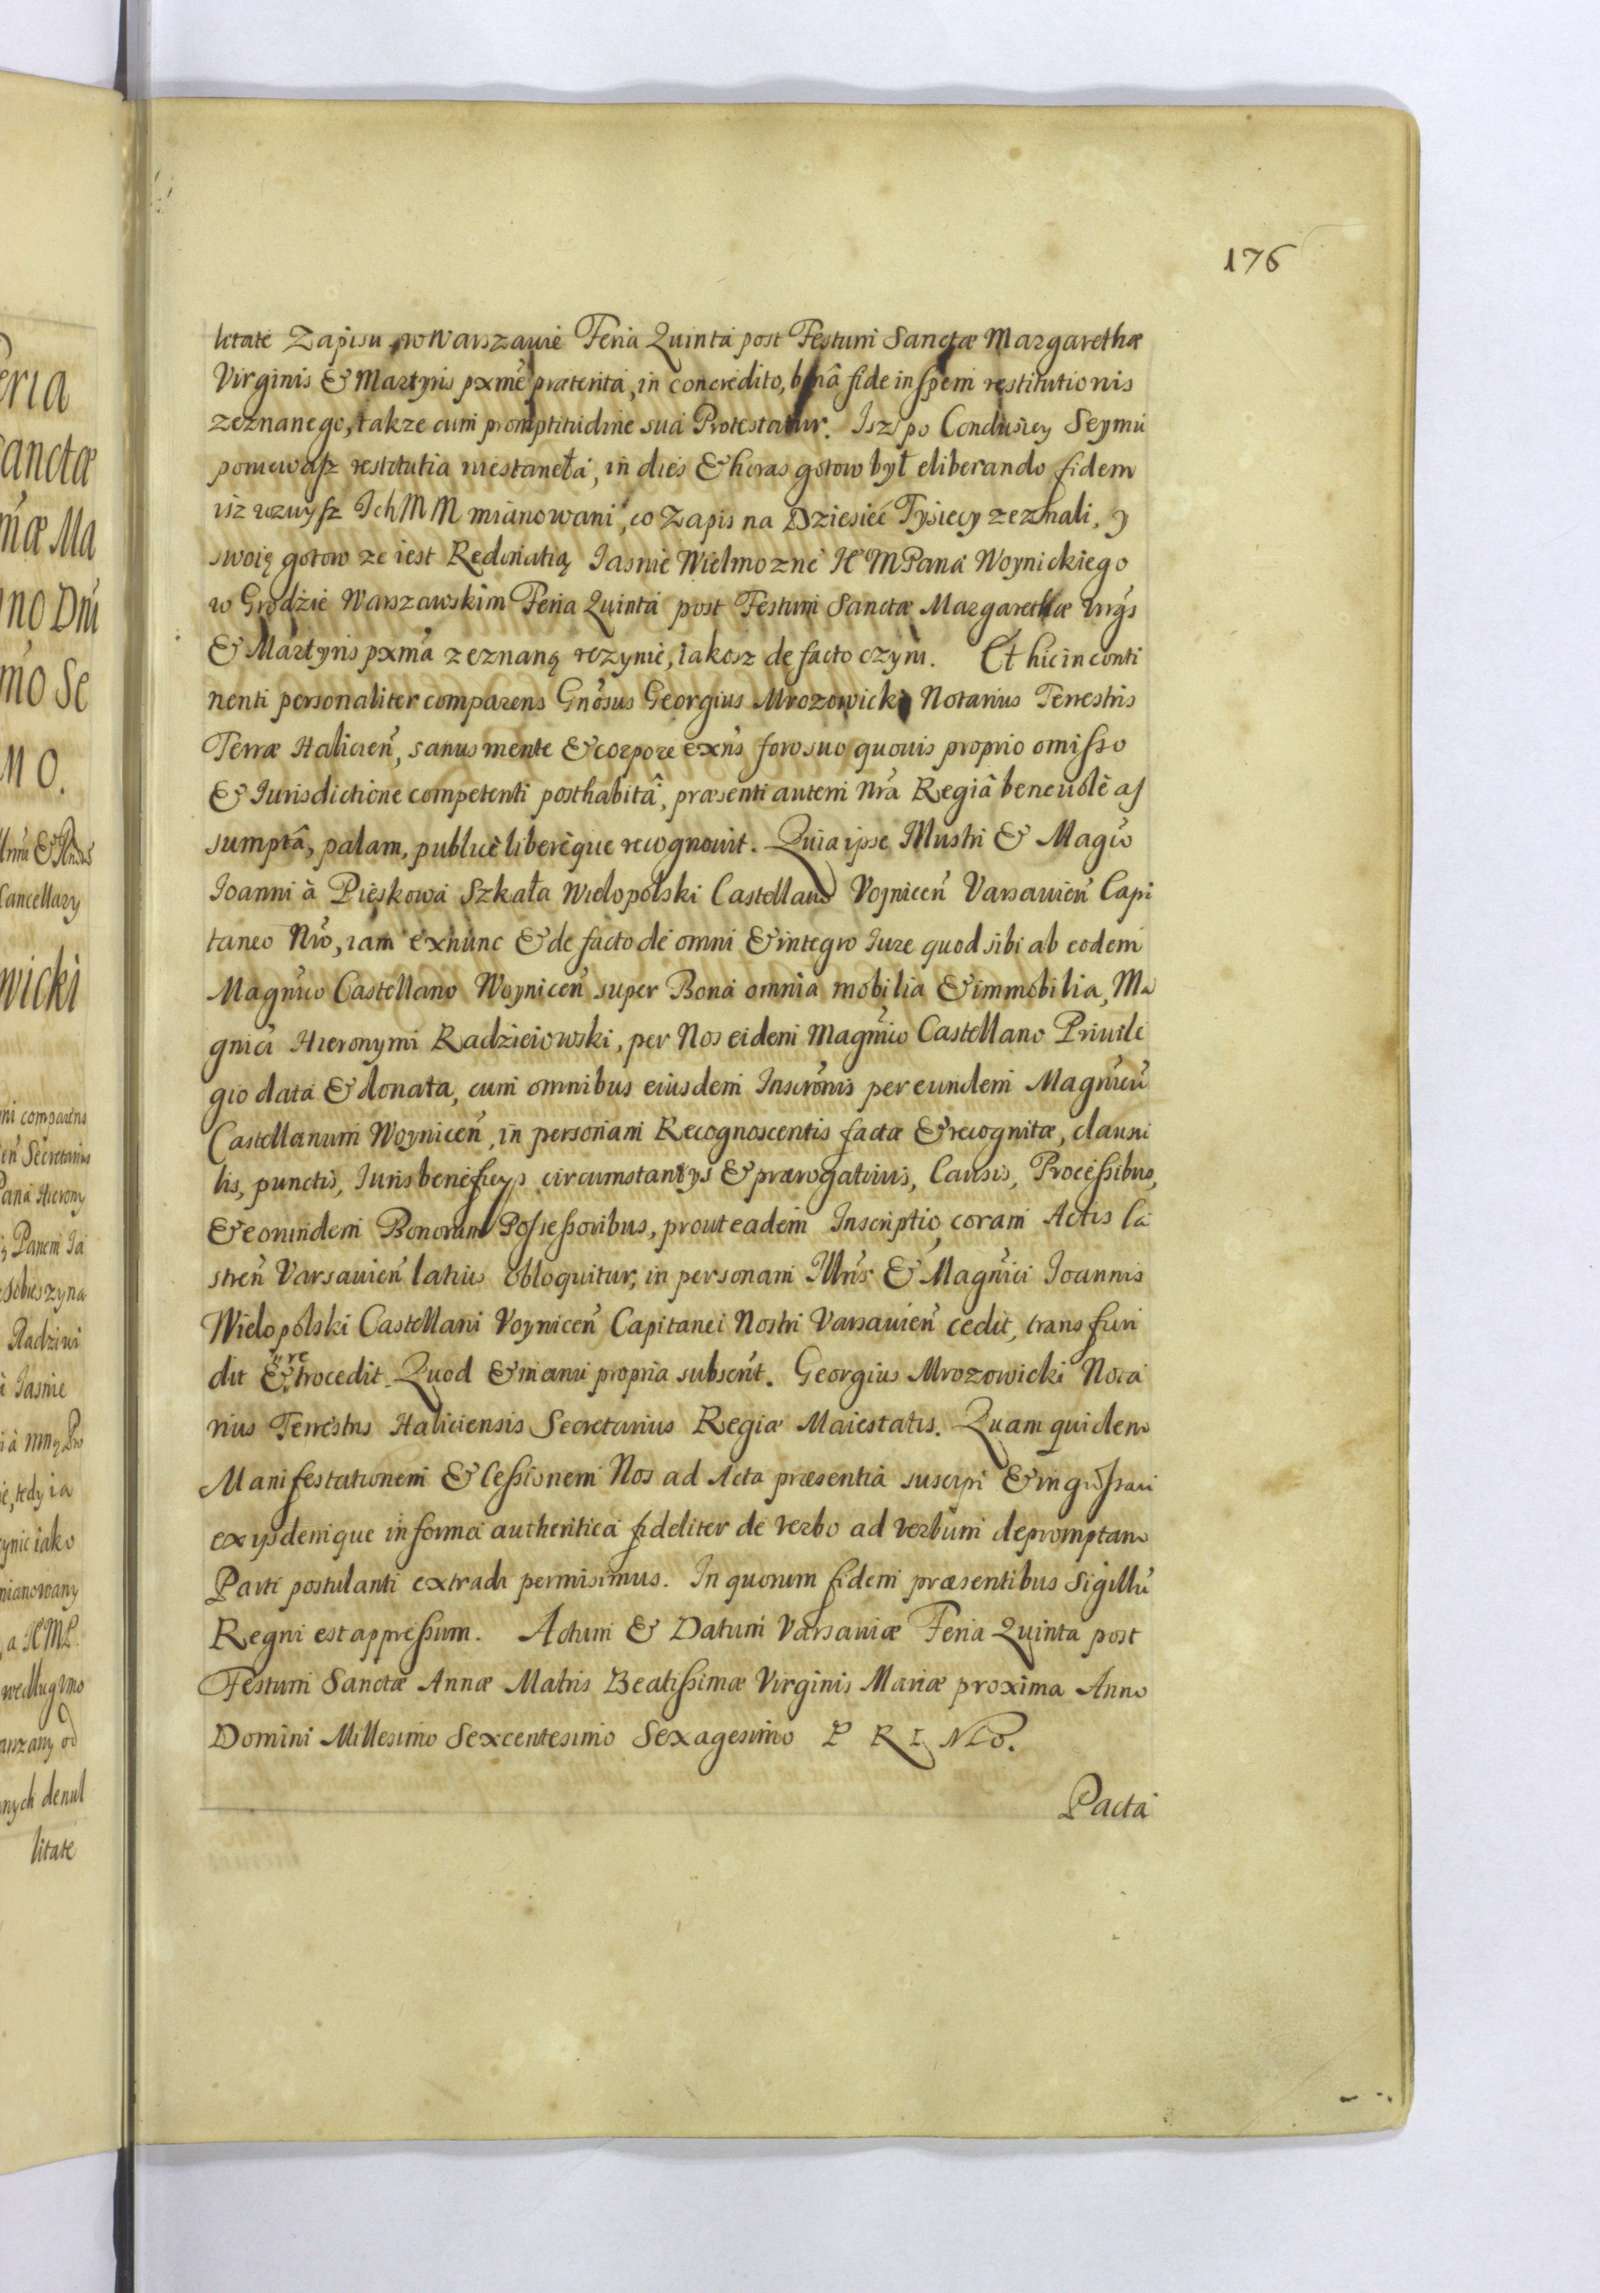 176
litate Zapisu w Warszawie Feria Quinta post Festum Sanctæ Margarethæ
Virginis & Martyris pxme præterita, in concredito, bonâ fide in spem restitutionis
zeznanego, takze cum promptitudine sua Protestatur. Isz po Conclusiey Seymu
poniewasz restitutia niestaneła, in dies & horas gotow był eliberando fidem
isz wzwysz Ich MM mianowani, co Zapis na Dziesięć Tysiecy zeznali, y
swoię gotow ze iest Redonatią Iasnie Wielmozne IE MPana Woynickiego
w Grodzie Warszawskim Feria Quinta post Festum Sanctæ Margarethæ Vrgs
& Martyris pxma zeznaną rczynic, iakosz de facto czyni. Et hic in conti
nenti personaliter comparens Gnosus Georgius Mrozowicki Notarius Terrestris
Terræ Halicien, sanus mente & corpore exns foro suo quouis proprio omisso
& Iurisdictione competenti posthabitâ, præsenti autem Nra Regiâ beneuolè as
sumptâ, palam, publicè liberèque recognouit. Quia ipse Illustri & Magco
Ioanni à Pieskowa Szkała Wielopolski Castellano Vojnicen Varsauien Capi
taneo Nro, iam exnunc & de facto de omni & integro Iure quod sibi ab eodem
Magnico Castellano Woynicen super Bona omnia mobilia & immobilia, Ma
gnici Hieronymi Radzieiowski, per Nos eidem Magnico Castellano Priuile
gio data & donata, cum omnibus eiusdem Inscronis per eundem Magnicu
Castellanum Woynicen, in personam Recognoscentis factæ & recognitæ, clausu
lis, punctis, Iuris beneficys circumstantys & prærogatiuis, Causis, Processibus,
& eorundem Bonorum Possessoribus, prout eadem Inscriptio coram Actis Ca
stren Varsauien latius obloquitur, in personam Illris & Magnici Ioannis
Wielopolski Castellani Voynicen Capitanei Nostri Varsauien cedit, transfun
dit & retrocedit. Quod & manu propria subscrit. Georgius Mrozowicki Nota
rius Terrestris Haliciensis Secretarius Regiæ Maiestatis. Quam quidem
Manifestationem & Cessionem Nos ad Acta præsentia suscipi & ingrossari
ex ysdemque in forma authentica fideliter de verbo ad verbum depromptam
Parti postulanti extradi permisimus. In quorum fidem præsentibus Sigillu
Regni est appressum. Actum & Datum Varsauiæ Feria Quinta post
Festum Sanctæ Annæ Matris Beatissimæ Virginis Mariæ proxima Anno
Domini Millesimo Sexcentesimo Sexagesimo PRIMO.
Pacta